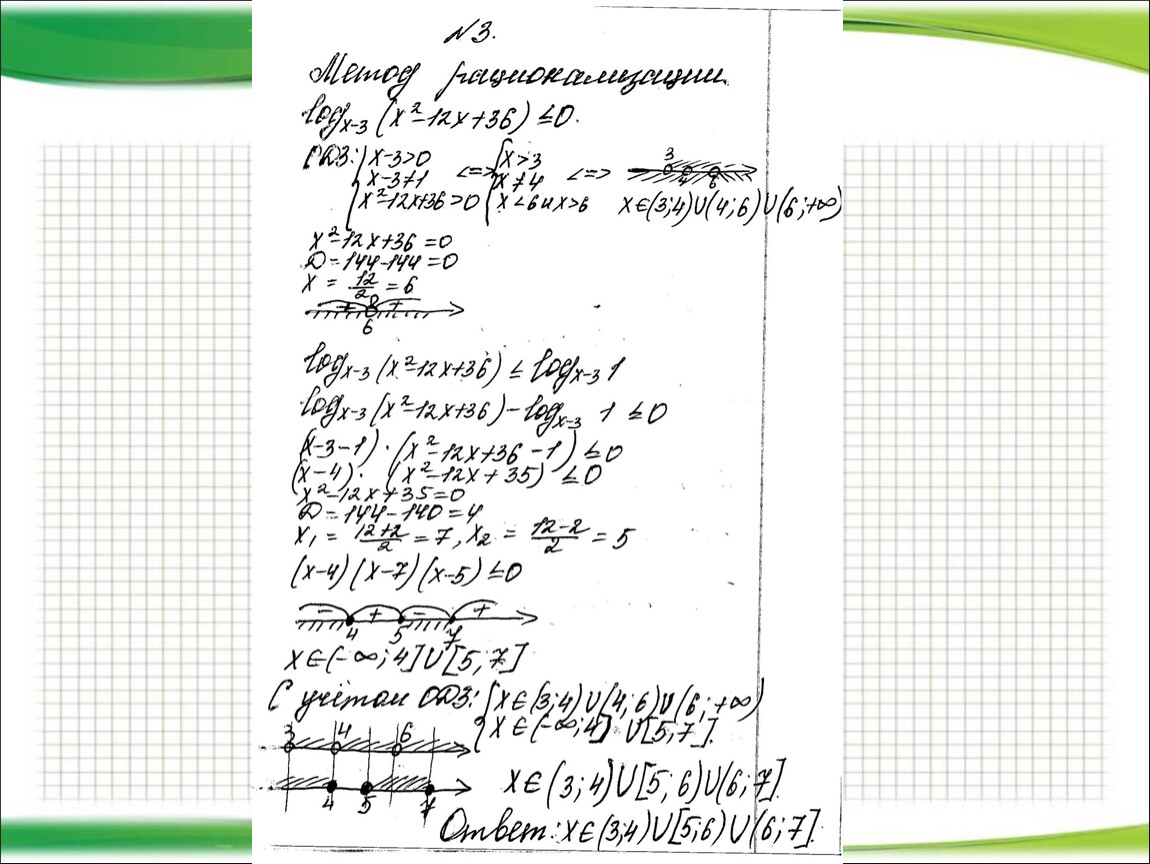 N3.
Метод рационализации.
log_{x-3}(x²-12x+36) ≤0.
ОДЗ: { x-3>0 <=> { x>3 <=> 3
x-3≠1 x≠4 4 6
x²-12x+36>0 x<6 и x>6 x∈(3;4)∪(4;6)∪(6;+∞)
x²-12x+36=0
D=144-144=0
x = 12/2 = 6
+ +
6
log_{x-3}(x²-12x+36) ≤ log_{x-3} 1
log_{x-3}(x²-12x+36) - log_{x-3} 1 ≤0
(x-3-1)·(x²-12x+36-1) ≤0
(x-4)·(x²-12x+35) ≤0
x²-12x+35=0
D=144-140=4
x₁ = (12+2)/2 = 7, x₂ = (12-2)/2 = 5
(x-4)(x-7)(x-5) ≤0
- + - +
4 5 7
x∈(-∞;4]∪[5;7]
С учётом ОДЗ: { x∈(3;4)∪(4;6)∪(6;+∞)
x∈(-∞;4] ∪[5;7].
3 4 6
4 5 7
x∈(3;4)∪[5;6)∪(6;7].
Ответ: x∈(3;4)∪[5;6)∪(6;7].